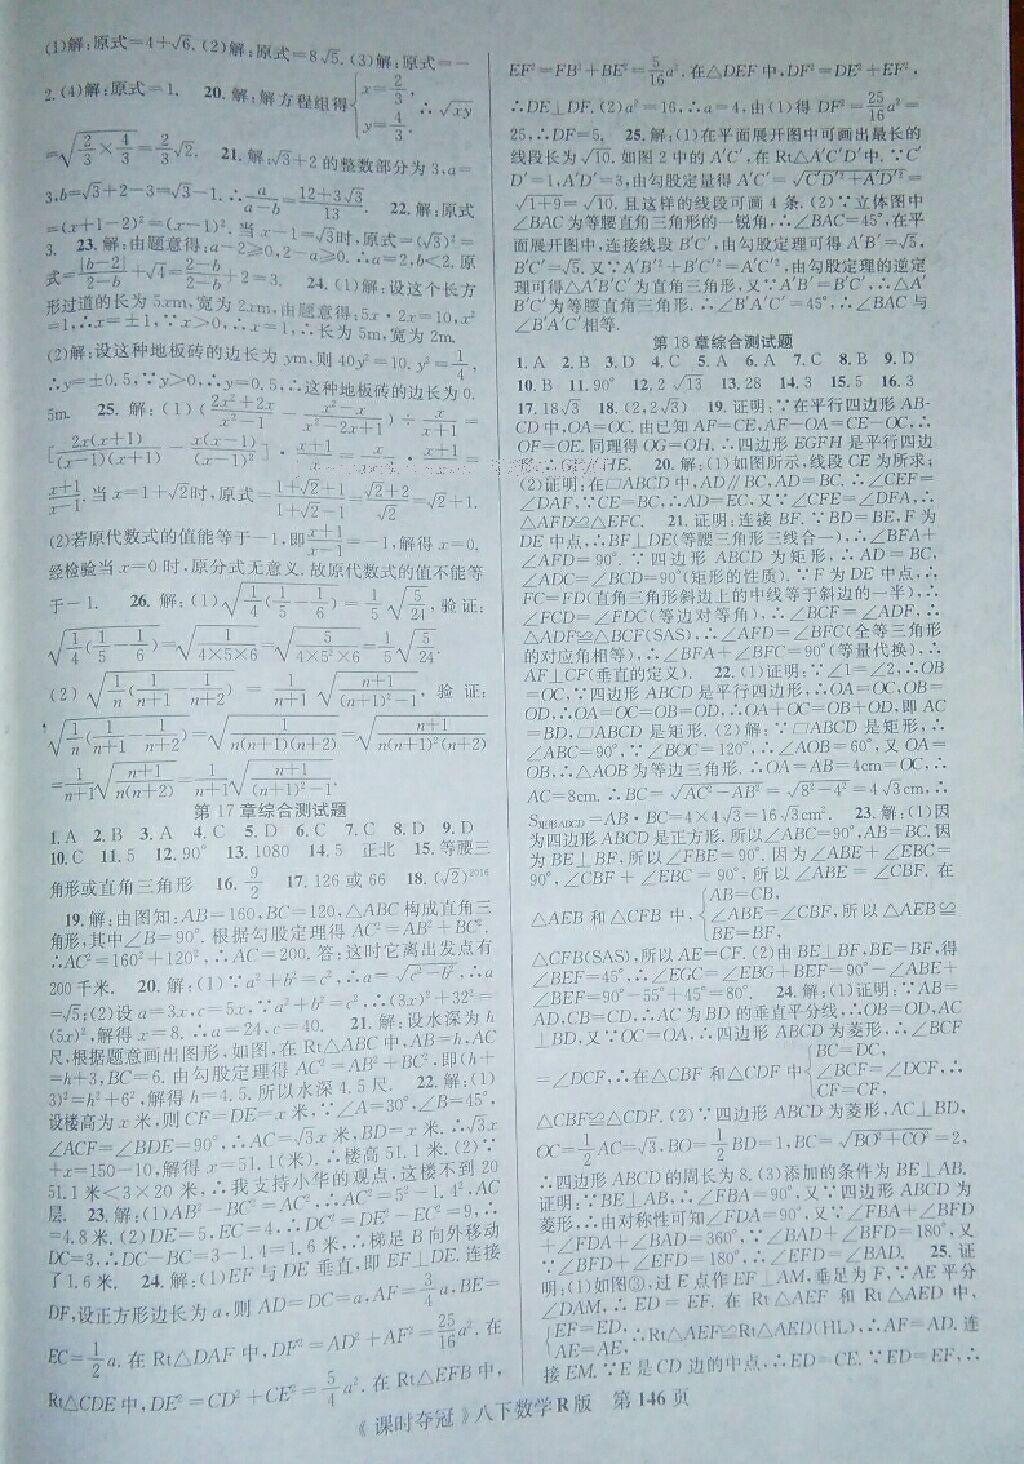 (1)解:原式=4+√6. (2)解:原式=8√5. (3)解:原式=-
2. (4)解:原式=1. 20. 解:解方程组得{x=2/3, y=4/3. ∴√xy
=√(2/3×4/3)=2/3√2. 21. 解:√3+2的整数部分为3,a=
3,b=√3+2-3=√3-1. ∴a/(a-b)=(12+3√3)/13. 22. 解:原式
=(x+1-2)²=(x-1)². 当x-1=√3时,原式=(√3)²=
3. 23. 解:由题意得:a-2≥0,2-a≥0. ∴a=2,b<2. 原
式=|b-2|/(2-b)+√4=(2-b)/(2-b)+2=3. 24. (1)解:设这个长方
形过道的长为5xm,宽为2xm,由题意得:5x·2x=10,x²
=1,∴x=±1,∵x>0,∴x=1,∴长为5m,宽为2m.
(2)解:设这种地板砖的边长为ym,则40y²=10. y²=1/4,
∴y=±0.5,∵y>0,∴y=0.5,∴这种地板砖的边长为0.
5m. 25. 解:(1)((2x²+2x)/(x²-1)-(x²-x)/(x²-2x+1))÷x/(x+1)=
[2x(x+1)/((x-1)(x+1))-x(x-1)/(x-1)²]·(x+1)/x=x/(x-1)·(x+1)/x=
(x+1)/(x-1). 当x=1+√2时,原式=(1+√2+1)/(1+√2-1)=(√2+2)/√2=√2+1.
(2)若原代数式的值能等于-1,即(x+1)/(x-1)=-1,解得x=0.
经检验当x=0时,原分式无意义. 故原代数式的值不能等
于-1. 26. 解:(1)√(1/4(1/5-1/6))=1/5√(5/24),验证:
√(1/4(1/5-1/6))=√(1/(4×5×6))=√(5/(4×5²×6))=1/5√(5/24).
(2)√(1/n(1/(n+1)-1/(n+2)))=1/(n+1)√((n+1)/((n+1)²-1). 验证:
√(1/n(1/(n+1)-1/(n+2)))=√(1/(n(n+1)(n+2)))=√((n+1)/(n(n+1)²(n+2)))
=1/(n+1)√((n+1)/(n(n+2)))=1/(n+1)√((n+1)/((n+1)²-1)).
第17章综合测试题
1. A 2. B 3. A 4. C 5. D 6. C 7. C 8. D 9. D
10. C 11. 5 12. 90° 13. 1080 14. 5 正北 15. 等腰三
角形或直角三角形 16. 9/2 17. 126或66 18. (√2)²⁰¹⁶
19. 解:由图知:AB=160,BC=120,△ABC构成直角三
角形,其中∠B=90°. 根据勾股定理得AC²=AB²+BC².
∴AC²=160²+120²,∴AC=200. 答:这时它离出发点有
200千米. 20. 解:(1)∵a²+b²=c²,∴a=√(c²-b²),∴a
=√5;(2)设a=3x,c=5x,∵a²+b²=c²,∴(3x)²+32²=
(5x)²,解得x=8. ∴a=24,c=40. 21. 解:设水深为h
尺,根据题意画出图形,如图,在Rt△ABC中,AB=h,AC
=h+3,BC=6. 由勾股定理得AC²=AB²+BC². 即(h+
3)²=h²+6²,解得h=4.5. 所以水深4.5尺. 22. 解:(1)
设楼高为x米,则CF=DE=x米,∵∠A=30°,∠B=45°,
∠ACF=∠BDE=90°,∴AC=√3x米,BD=x米. ∴√3x
+x=150-10,解得x=51.1(米). ∴楼高51.1米. (2)∵
51.1米<3×20米,∴我支持小华的观点,这楼不到20
层. 23. 解:(1)AB²-BC²=AC²,∴AC²=5²-1.4²,AC
=4.8米. (2)DE=5,EC=4,∴DC²=DE²-EC²=9,∴
DC=3,∴DC-BC=3-1.4=1.6米,∴梯足B向外移动
了1.6米. 24. 解:(1)EF与DE垂直,即EF⊥DE. 连接
DF,设正方形边长为a,则AD=DC=a,AF=3/4a,BE=
EC=1/2a. 在Rt△DAF中,DF²=AD²+AF²=25/16a². 在
Rt△CDE中,DE²=CD²+CE²=5/4a². 在Rt△EFB中,
EF²=FB²+BE²=5/16a². 在△DEF中,DF²=DE²+EF²,
∴DE⊥DF. (2)a²=16,∴a=4,由(1)得DF²=25/16a²=
25,∴DF=5. 25. 解:(1)在平面展开图中可画出最长的
线段长为√10. 如图2中的A′C′,在Rt△A′C′D′中. ∵C′
D′=1,A′D′=3,由勾股定量得A′C′=√(C′D′²+A′D′²)=
√(1+9)=√10. 且这样的线段可画4条. (2)∵立体图中
∠BAC为等腰直角三角形的一锐角,∴∠BAC=45°,在平
面展开图中,连接线段B′C′,由勾股定理可得A′B′=√5,
B′C′=√5. 又∵A′B′²+B′C′²=A′C′²,由勾股定理的逆定
理可得△A′B′C′为直角三角形,又∵A′B′=B′C′,∴△A′
B′C′为等腰直角三角形. ∴∠B′A′C′=45°,∴∠BAC与
∠B′A′C′相等.
第18章综合测试题
1. A 2. B 3. D 4. C 5. A 6. A 7. C 8. B 9. D
10. B 11. 90° 12. 2√13 13. 28 14. 3 15. 5 16. 3
17. 18√3 18. (2,2√3) 19. 证明:∵在平行四边形AB-
CD中,OA=OC. 由已知AF=CE,AF-OA=CE-OC,∴
OF=OE. 同理得OG=OH. ∴四边形EGFH是平行四边
形 ∴ HE. 20. 解:(1)如图所示,线段CE为所求;
(2)证明:在▱ABCD中,AD∥BC,AD=BC. ∴∠CEF=
∠DAF,∵CE=BC,∴AD=EC,又∵∠CFE=∠DFA,∴
△AFD≌△EFC. 21. 证明:连接BF. ∵BD=BE,F为
DE中点,∴BF⊥DE(等腰三角形三线合一),∴∠BFA+
∠AFD=90°. ∵四边形ABCD为矩形,∴AD=BC,
∠ADC=∠BCD=90°(矩形的性质). ∵F为DE中点,∴
FC=FD(直角三角形斜边上的中线等于斜边的一半),∴
∠FCD=∠FDC(等边对等角),∴∠BCF=∠ADF,∴
△ADF≌△BCF(SAS),∴∠AFD=∠BFC(全等三角形
的对应角相等),∴∠BFA+∠BFC=90°(等量代换),∴
AF⊥CF(垂直的定义). 22. (1)证明:∵∠1=∠2,∴OB
=OC,∵四边形ABCD是平行四边形,∴OA=OC,OB=
OD,∴OA=OC=OB=OD,∴OA+OC=OB+OD,即AC
=BD,▱ABCD是矩形. (2)解:∵▱ABCD是矩形,∴
∠ABC=90°,∵∠BOC=120°,∴∠AOB=60°,又OA=
OB,∴△AOB为等边三角形. ∴OA=AB=4cm=OC,∴
AC=8cm. ∴BC=√(AC²-AB²)=√(8²-4²)=4√3cm,∴
S矩形ABCD=AB·BC=4×4√3=16√3cm². 23. 解:(1)因
为四边形ABCD是正方形. 所以∠ABC=90°,AB=BC. 因
为BE⊥BF,所以∠FBE=90°. 因为∠ABE+∠EBC=
90°,∠CBF+∠EBC=90°,所以∠ABE=∠CBF. 在
△AEB和△CFB中,{AB=CB, ∠ABE=∠CBF, BE=BF, 所以△AEB≌
△CFB(SAS),所以AE=CF. (2)由BE⊥BF,BE=BF,得
∠BEF=45°,∴∠EGC=∠EBG+∠BEF=90°-∠ABE+
∠BEF=90°-55°+45°=80°. 24. 解:(1)证明:∵AB=
AD,CB=CD,∴AC为BD的垂直平分线,∴OB=OD,AC
⊥BD,又∵OC=OA,∴四边形ABCD为菱形,∴∠BCF
=∠DCF,∴在△CBF和△CDF中{BC=DC, ∠BCF=∠DCF,∴ CF=CF.
△CBF≌△CDF. (2)∵四边形ABCD为菱形,AC⊥BD,
OC=1/2AC=√3,BO=1/2BD=1,BC=√(BO²+CO²)=2,
∴四边形ABCD的周长为8. (3)添加的条件为BE⊥AB.
证明:∵BE⊥AB,∴∠FBA=90°,又∵四边形ABCD为
菱形,∴由对称性可知∠FDA=90°,又∵∠FBA+∠BFD
+∠FDA+∠BAD=360°,∵∠BAD+∠BFD=180°,又
∵∠BFD+∠EFD=180°,∴∠EFD=∠BAD. 25. 证
明:(1)如图③,过E点作EF⊥AM,垂足为F,∵AE平分
∠DAM,∴ED=EF. 在Rt△AEF和Rt△AED中,
{EF=ED, AE=AE, ∴Rt△AEF≌Rt△AED(HL),∴AF=AD. 连
接EM. ∵E是CD边的中点,∴ED=CE. ∵ED=EF,∴
《课时夺冠》八下数学R版 第146页